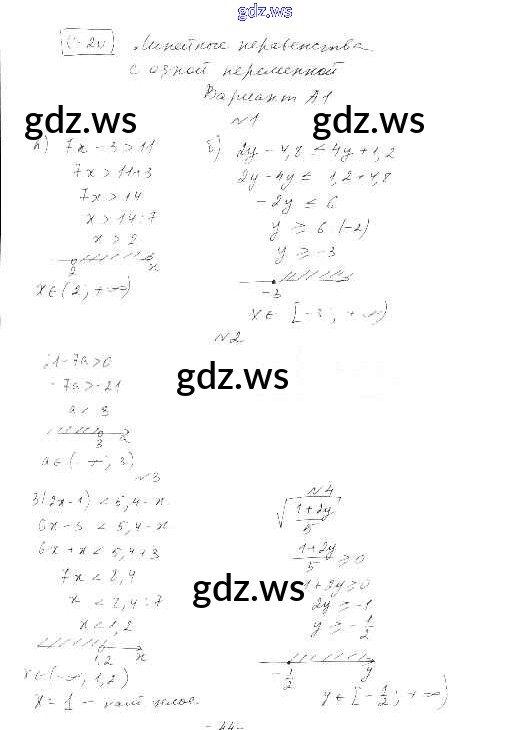 gdz.ws
С-20 Линейные неравенства
с одной переменной
Вариант А1
gdz.ws
gdz.ws
№1
а) 7x - 3 > 11
7x > 11+3
7x > 14
x > 14:7
x > 2
2 x
x ∈ (2; +∞)
б) 2y - 4,8 ≤ 4y + 1,2
2y - 4y ≤ 1,2 + 4,8
-2y ≤ 6
y ≥ 6:(-2)
y ≥ -3
-3
x ∈ [-3; +∞)
№2
gdz.ws
21-7a>0
-7a>-21
a < 3
3
a ∈ (-∞; 3)
№3
3(2x-1) < 5,4-x
6x-3 < 5,4-x
6x+x < 5,4+3
7x < 8,4
x < 8,4:7
x < 1,2
1,2 x
x ∈ (-∞; 1,2)
x = 1 - наиб целое.
№4
√((1+2y)/5)
(1+2y)/5 ≥ 0
gdz.ws
1+2y ≥ 0
2y ≥ -1
y ≥ -1/2
-1/2 y
y ∈ [-1/2; +∞)
- 44 -